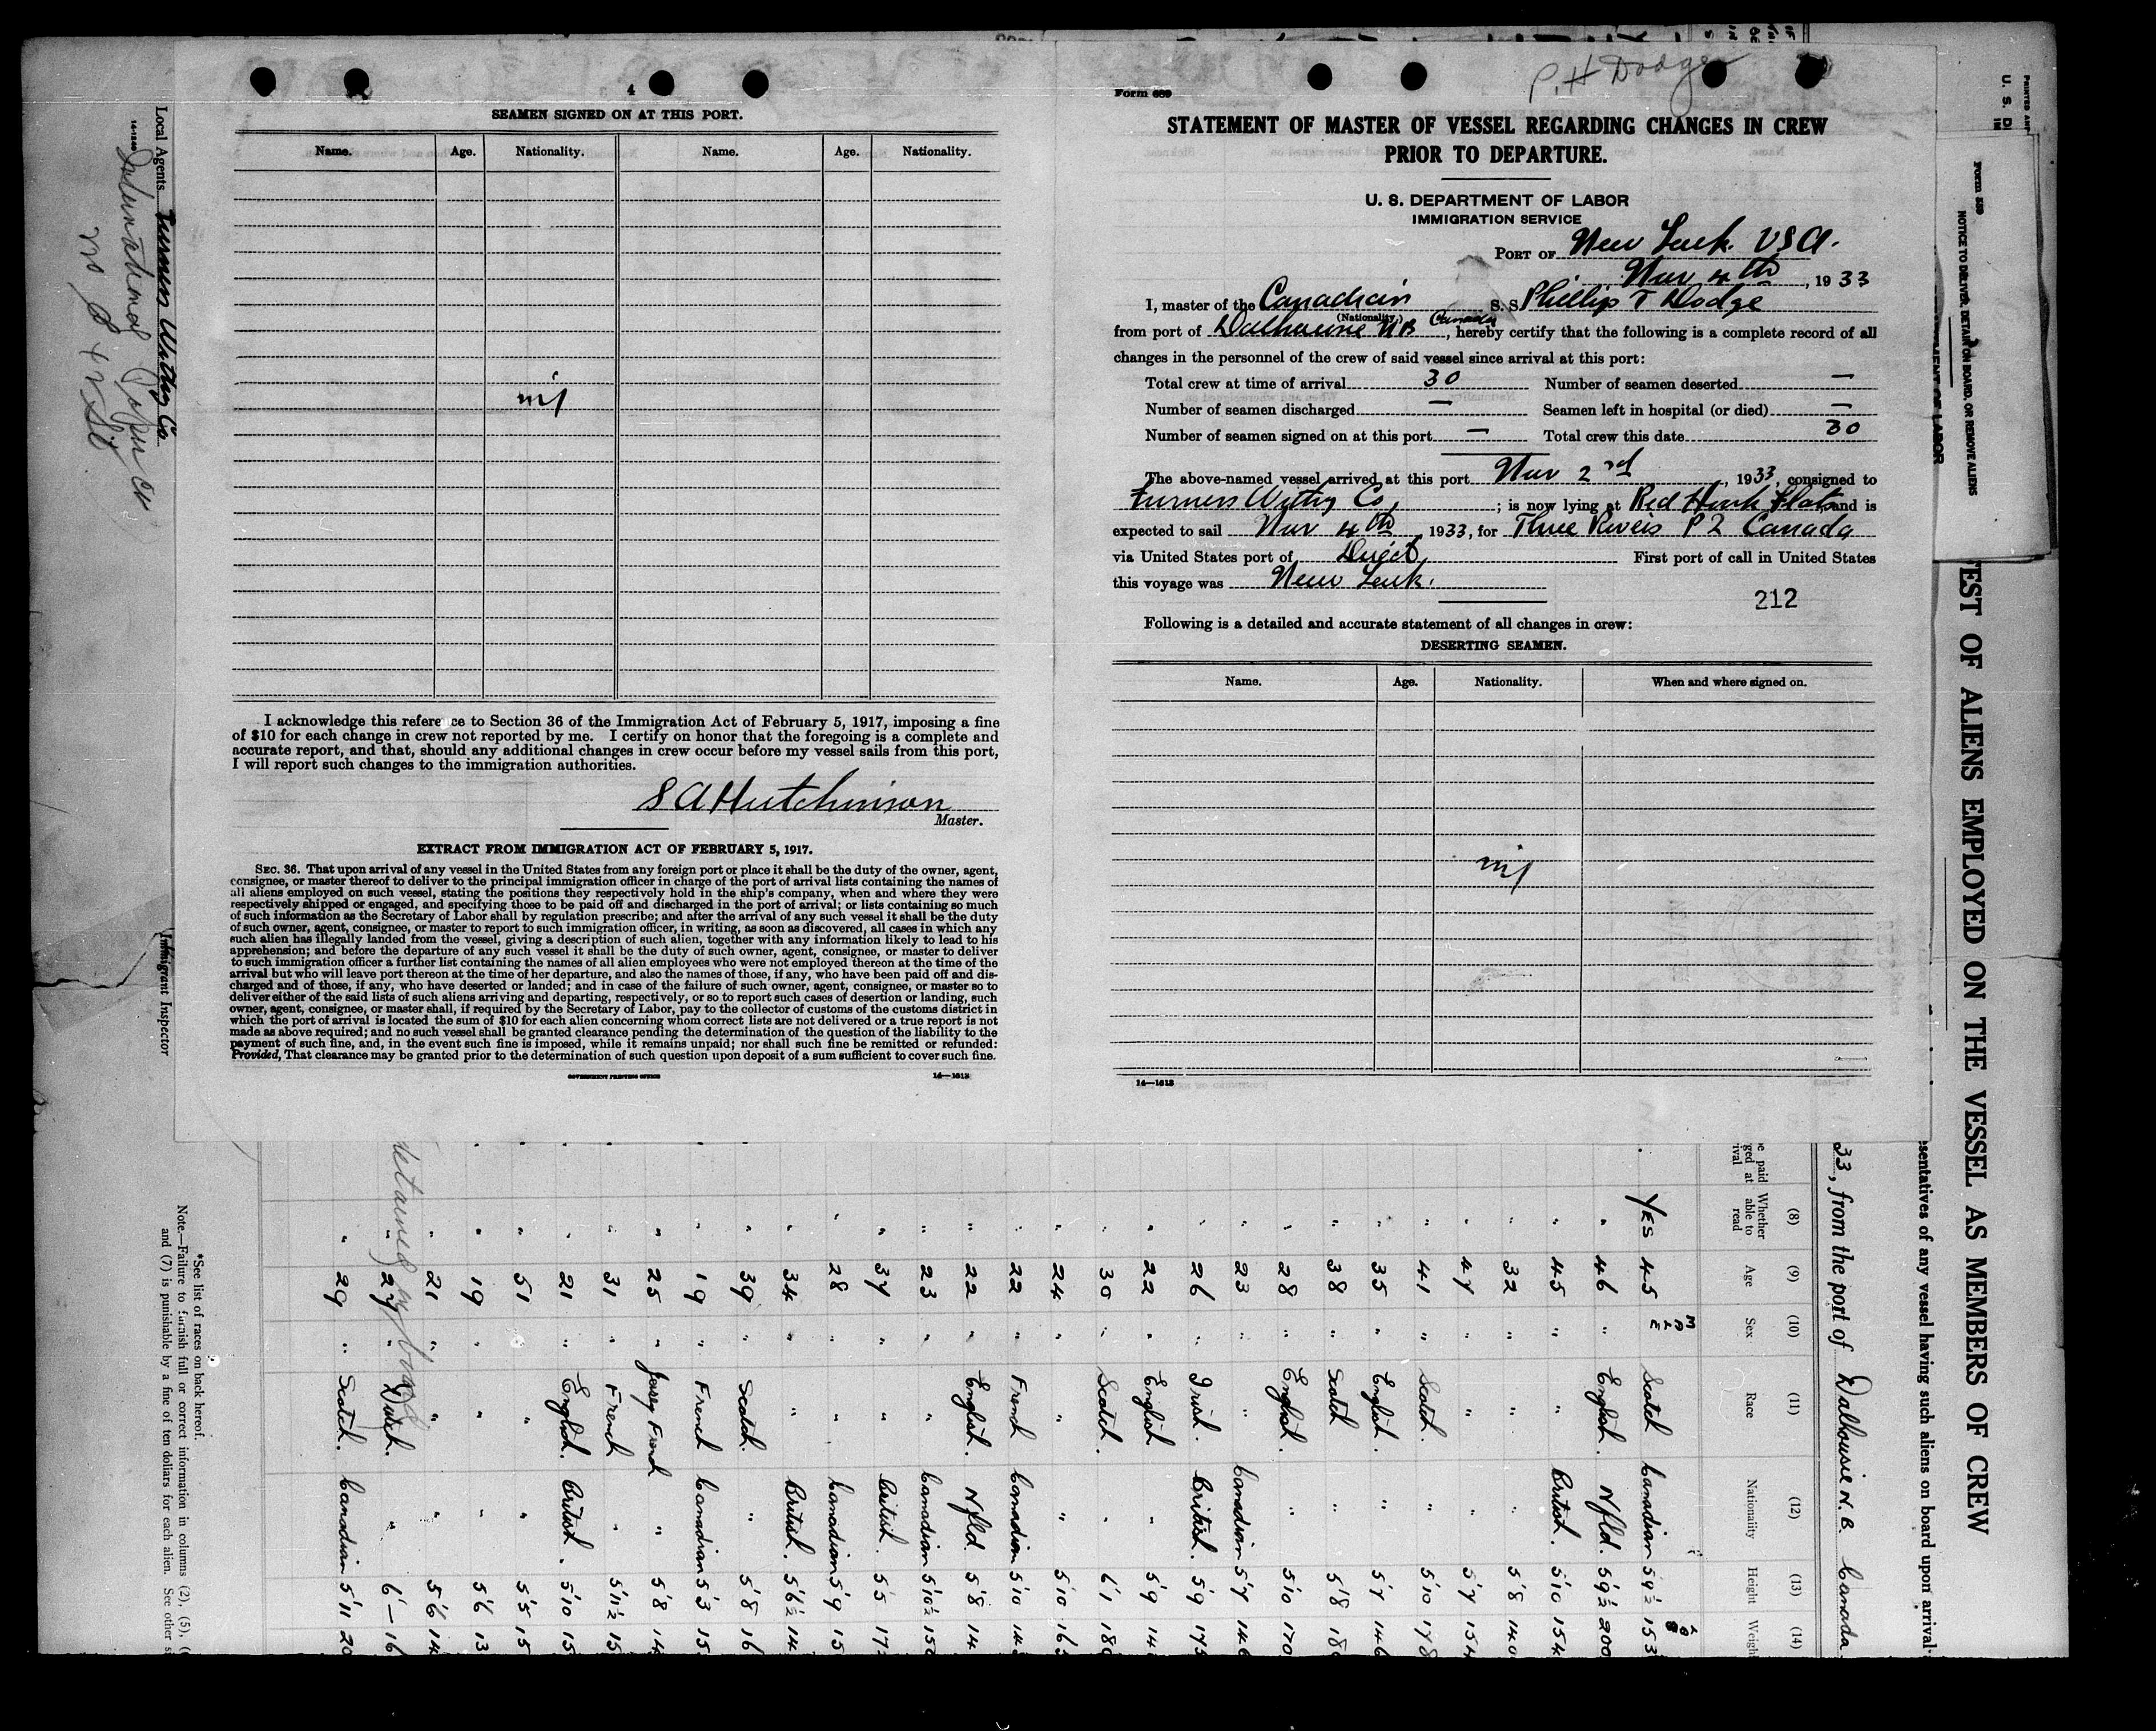 4
SEAMEN SIGNED ON AT THIS PORT.
Name. Age. Nationality. Name. Age. Nationality.
nil
I acknowledge this reference to Section 36 of the Immigration Act of February 5, 1917, imposing a fine
of $10 for each change in crew not reported by me. I certify on honor that the foregoing is a complete and
accurate report, and that, should any additional changes in crew occur before my vessel sails from this port,
I will report such changes to the immigration authorities.
S A Hutchinson
Master.
EXTRACT FROM IMMIGRATION ACT OF FEBRUARY 5, 1917.
SEC. 36. That upon arrival of any vessel in the United States from any foreign port or place it shall be the duty of the owner, agent,
consignee, or master thereof to deliver to the principal immigration officer in charge of the port of arrival lists containing the names of
all aliens employed on such vessel, stating the positions they respectively hold in the ship's company, when and where they were
respectively shipped or engaged, and specifying those to be paid off and discharged in the port of arrival; or lists containing so much
of such information as the Secretary of Labor shall by regulation prescribe; and after the arrival of any such vessel it shall be the duty
of such owner, agent, consignee, or master to report to such immigration officer, in writing, as soon as discovered, all cases in which any
such alien has illegally landed from the vessel, giving a description of such alien, together with any information likely to lead to his
apprehension; and before the departure of any such vessel it shall be the duty of such owner, agent, consignee, or master to deliver
to such immigration officer a further list containing the names of all alien employees who were not employed thereon at the time of the
arrival but who will leave port thereon at the time of her departure, and also the names of those, if any, who have been paid off and dis-
charged and of those, if any, who have deserted or landed; and in case of the failure of such owner, agent, consignee, or master so to
deliver either of the said lists of such aliens arriving and departing, respectively, or so to report such cases of desertion or landing, such
owner, agent, consignee, or master shall, if required by the Secretary of Labor, pay to the collector of customs of the customs district in
which the port of arrival is located the sum of $10 for each alien concerning whom correct lists are not delivered or a true report is not
made as above required; and no such vessel shall be granted clearance pending the determination of the question of the liability to the
payment of such fine, and, in the event such fine is imposed, while it remains unpaid; nor shall such fine be remitted or refunded:
Provided, That clearance may be granted prior to the determination of such question upon deposit of a sum sufficient to cover such fine.
GOVERNMENT PRINTING OFFICE 14—1613
Form 689
P. H Dodge
STATEMENT OF MASTER OF VESSEL REGARDING CHANGES IN CREW
PRIOR TO DEPARTURE.
U. S. DEPARTMENT OF LABOR
IMMIGRATION SERVICE
PORT OF New York. USA.
Nov 4th, 1933
I, master of the Canadian S. S. Phillip T Dodge
(Nationality.)
from port of Dalhousie NB Canada, hereby certify that the following is a complete record of all
changes in the personnel of the crew of said vessel since arrival at this port:
Total crew at time of arrival 30 Number of seamen deserted —
Number of seamen discharged — Seamen left in hospital (or died) —
Number of seamen signed on at this port — Total crew this date 30
The above-named vessel arrived at this port Nov 2nd, 1933, consigned to
Furness Withy Co, ; is now lying at Red Hook Flats, and is
expected to sail Nov 4th, 1933, for Three Rivers P Q Canada
via United States port of Direct First port of call in United States
this voyage was New York.
212
Following is a detailed and accurate statement of all changes in crew:
DESERTING SEAMEN.
Name. Age. Nationality. When and where signed on.
nil
14—1613
Local Agents Furness Withy Co
International Paper Co
Immigrant Inspector
Form 559
NOTICE TO DELIVER, DETAIN ON BOARD, OR REMOVE ALIENS
EST OF ALIENS EMPLOYED ON THE VESSEL AS MEMBERS OF CREW
sentatives of any vessel having such aliens on board upon arrival
33, from the port of Dalhousie N. B. Canada
(8) (9) (10) (11) (12) (13) (14)
Whether able to read Age Sex Race Nationality Height Weight
YES 45 MALE Scotch Canadian 5'9½ 153
" 46 " English. Nfld. 5'9½ 200
" 45 " " British. 5'10 154
" 32 " " " 5'8 140
" 47 " " " 5'7 154
" 41 " Scotch. " 5'10 178
" 35 " English. " 5'7 146
" 38 " Scotch " 5'8 180
" 28 " English. " 5'10 170
" 23 " " Canadian 5'7 146
" 26 " Irish. British. 5'9 175
" 22 " English " 5'9 14
" 30 " Scotch. " 6'1 180
" 24 " " " 5'10 165
" 22 " French Canadian 5'10 14
" 22 " English. Nfld. 5'8 14
" 23 " " Canadian 5'10½ 150
" 37 " " British. 5'5 17
" 28 " " Canadian 5'9 15
" 34 " " British. 5'6½ 14
" 39 " Scotch. " 5'8 16
" 19 " French Canadian 5'3 15
" 25 " Jersey French " 5'8 14
" 31 " French " 5'11½ 15
" 21 " English. British. 5'10 15
" 51 " " " 5'5 15
" 19 " " " 5'6 13
" 21 " " " 5'6 14
" 27 " Dutch. " 6'— 16
detained on board
" 29 " Scotch. Canadian 5'11 20
*See list of races on back hereof.
Note.—Failure to furnish full or correct information in columns (2), (5), (
and (7) is punishable by a fine of ten dollars for each alien. See other s